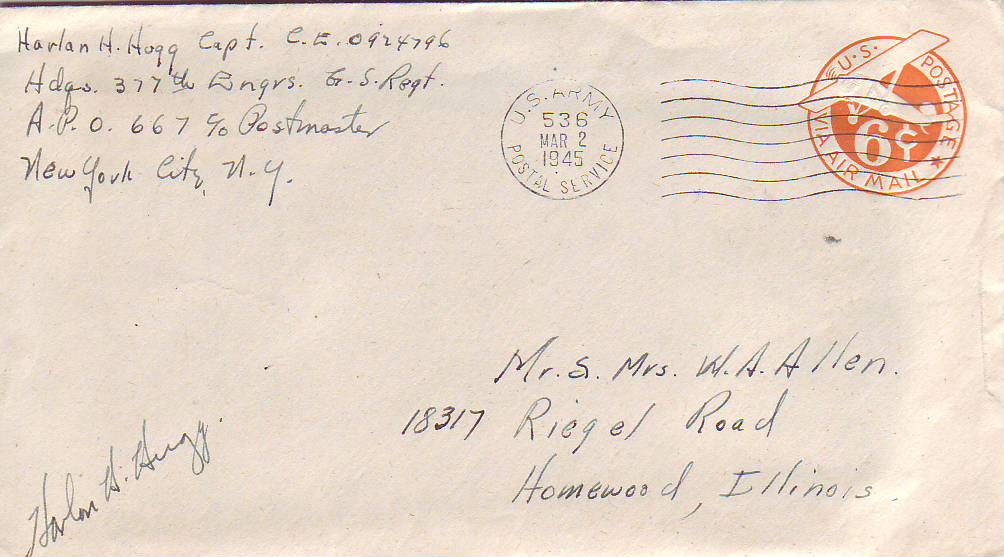 Harlan H. Hugg Capt. C.E. 0924796
Hdqs. 377th Engrs. G.S. Regt.
A.P.O. 667 c/o Postmaster
New York City, N.Y.
U.S. ARMY
536
MAR 2
1945
POSTAL SERVICE
U.S. POSTAGE
6¢
VIA AIR MAIL
Mr. & Mrs. W.A. Allen.
18317 Riegel Road
Homewood, Illinois.
Harlan H. Hugg.